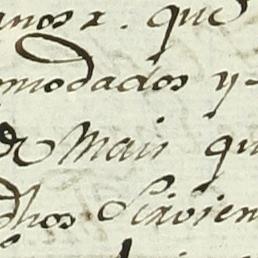 anos x. que
modados y
de Mais qu
dhos Sirvien